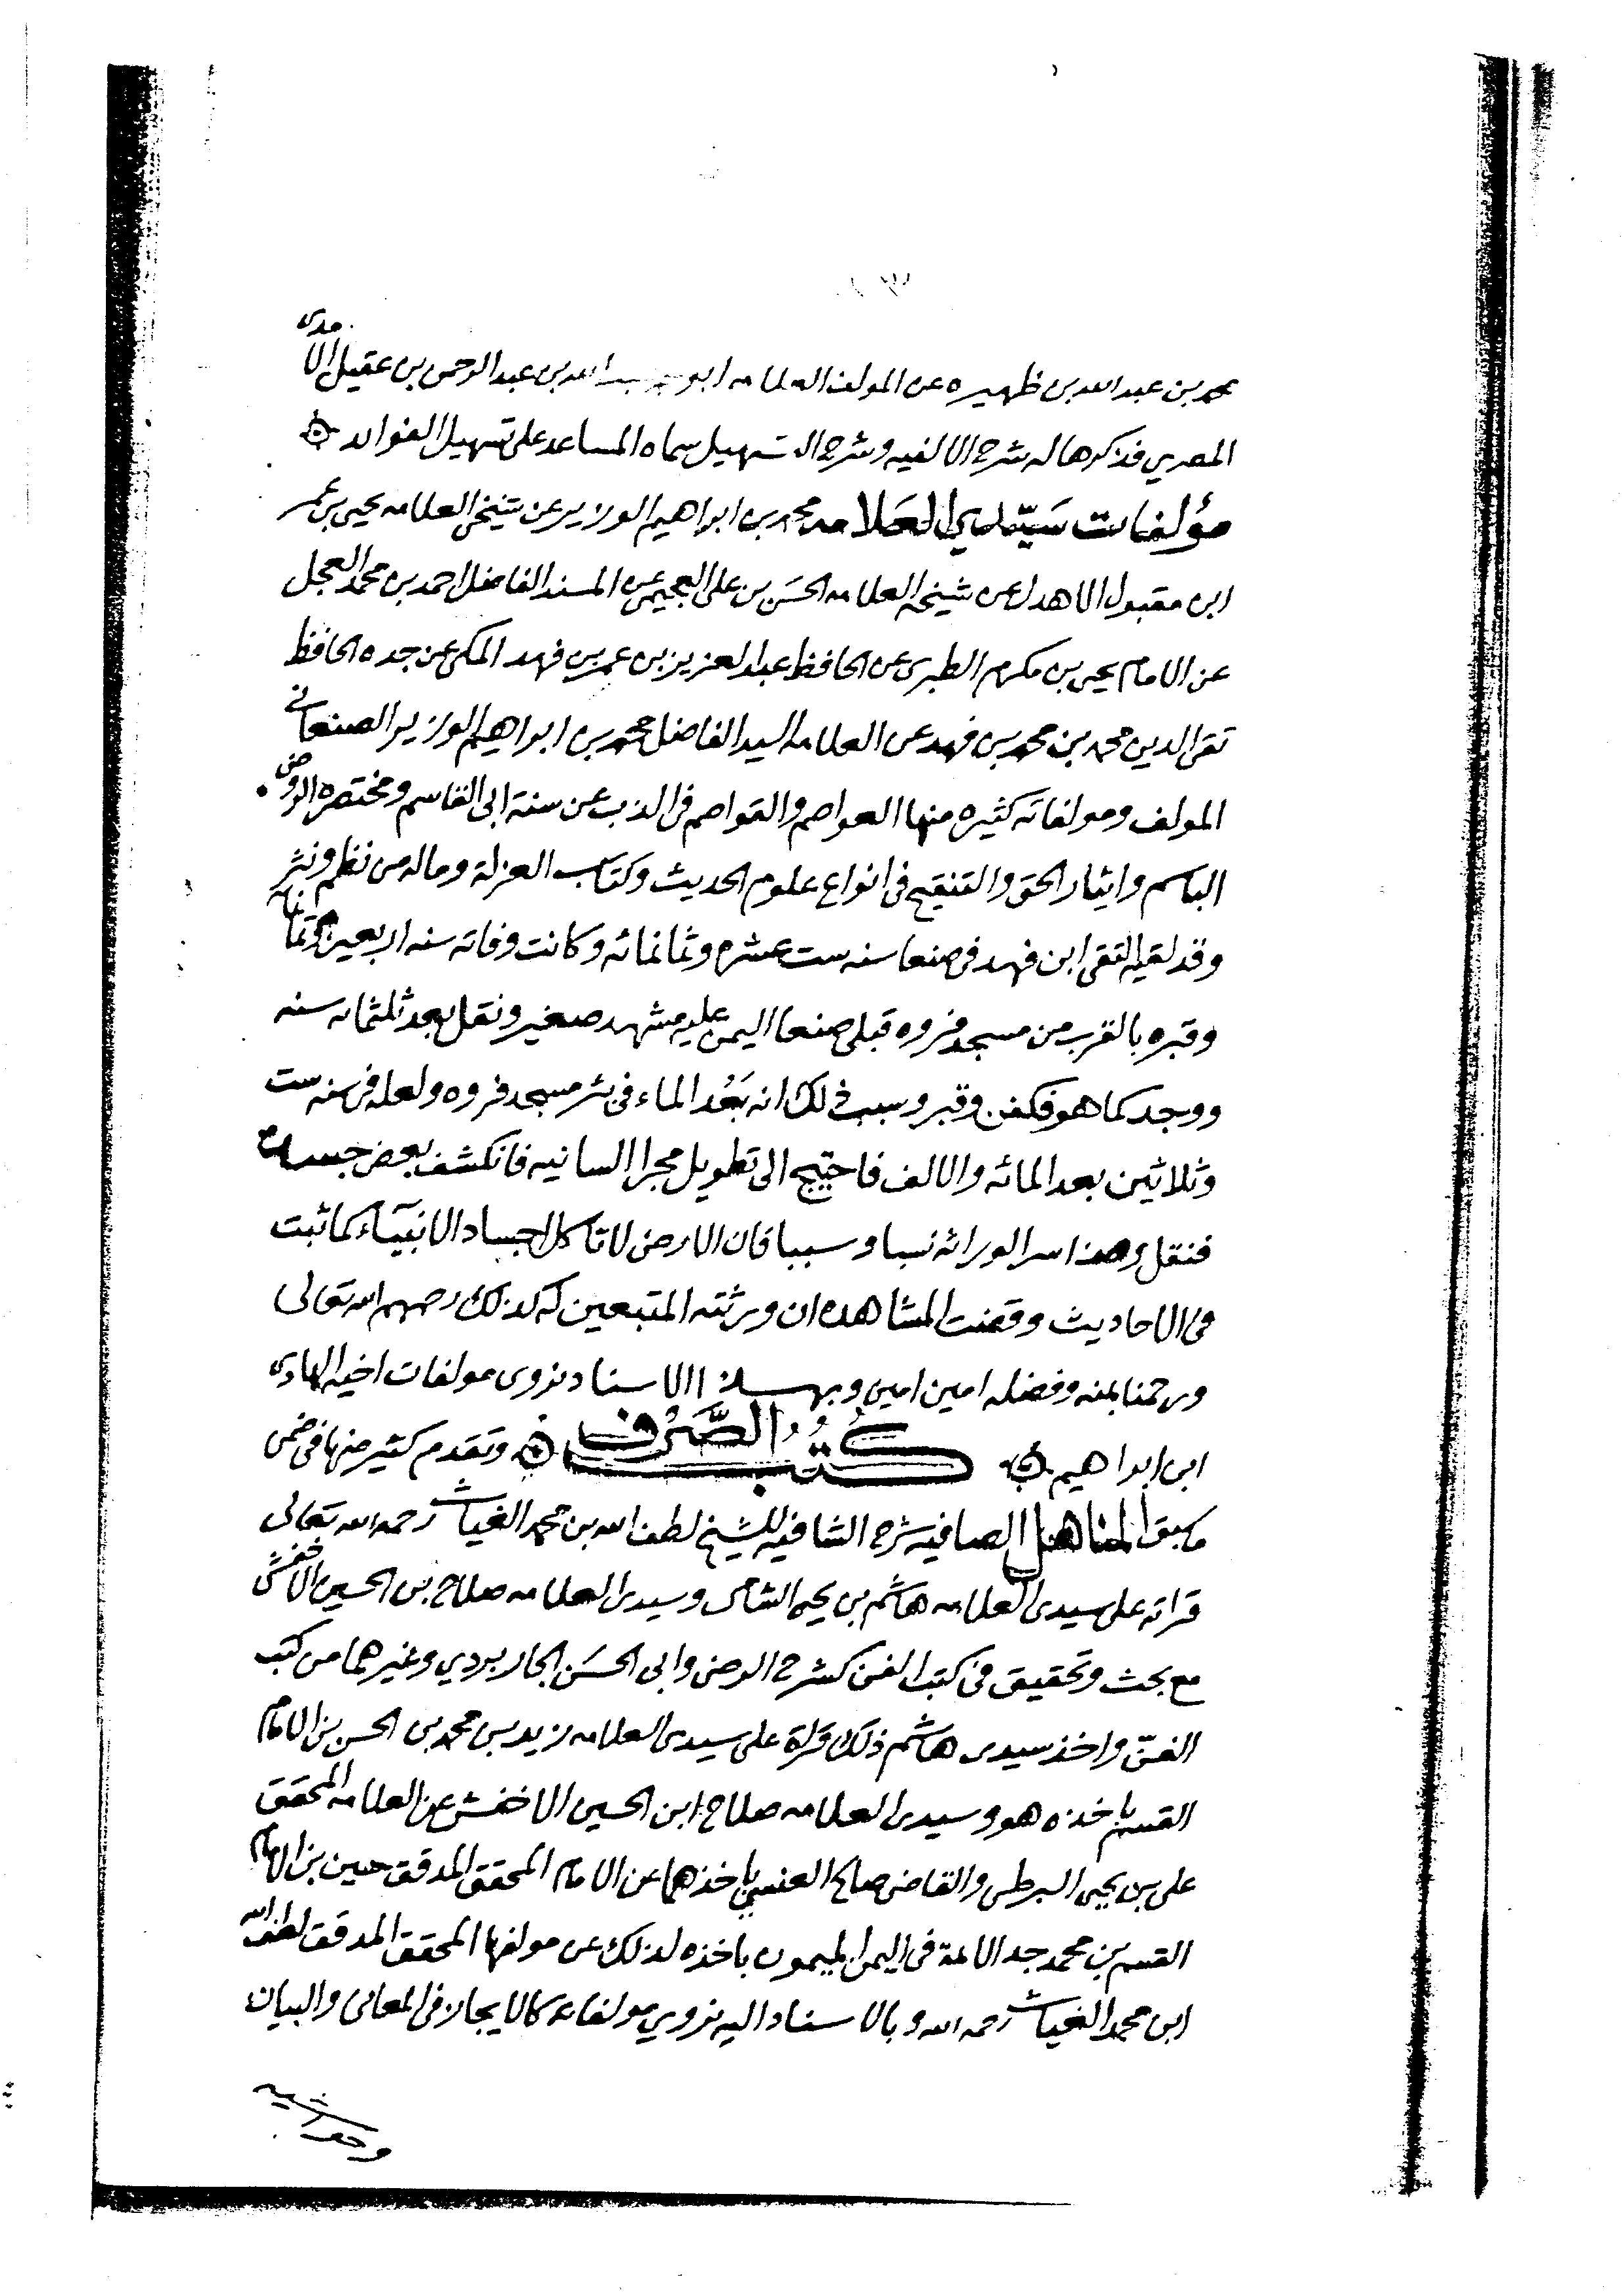 محمد بن عبد الله بن ظهيره عن المولف العلامه ابو عبد الله بن عبد الرحمن بن عقيل الامدى
المصري فذكرها له شرح الالفيه وشرح التسهيل سماه المساعد على تسهيل الفوائد
مؤلفات سَيّدي العَلامه محمد بن ابراهيم الوزير عن شيخى العلامه يحيى بن عمر
ابن مقبول الاهدل عن شيخه العلامه الحسَن بن على العجيمى عن المسند الفاضل احمد بن محمد العجل
عن الامام يحيى بن مكرم الطبرى عن الحافظ عبد العزيز بن عمر بن فهد المكى عن جده الحافظ
تقى الدين محمد بن محمد بن فهد عن العلامه السيد الفاضل محمد بن ابراهيم الوزير الصنعانى
المولف ومولفاته كثيره منها العواصم والقواصم فى الذب عن سنة ابى القاسم ومختصره الروض
الباسم وايثار الحق والتنقيح فى انواع علوم الحديث وكتاب العزلة وماله من نظم ونثر
وقد لقيه التقى ابن فهد فى صنعا سنه ست عشره وثمانمائه وكانت وفاته سنه اربعين وثمانمائه
وقبره بالقرب من مسجد فروه قبلى صنعا اليمن عليه مشهد صغير ونقل بعد ثلثمائه سنه
ووجد كما هو فكفن وقبر وسبب ذلك انه بَعُد الماء فى بئر مسجد فروه ولعله فى سنه ست
وثلاثين بعد المائه والالف فاحتيج الى تطويل مجرا السانيه فانكشف بعض جسده
فنقل وهذا سر الوراثه نسبا وسببا فان الارض لا تاكل اجساد الانبيآء كما ثبت
فى الاحاديث وقضت المشاهده ان ورثته المتبعين له كذلك رحمهم الله تعالى
ورحمنا بمنه وفضله امين امين وبهذا الاسناد نروى مولفات اخيه الهادى
ابن ابراهيم كُتُبُ الصَّرْف وتقدم كثير منها فى ضمن
ما سبق المناهل الصافيه شرح الشافيه للشيخ لطف الله بن محمد الغياث رحمه الله تعالى
قراته على سيدى العلامه هاشم بن يحيى الشامى وسيدى العلامه صلاح بن الحسين الاخفش
مع بحث وتحقيق فى كتب الفن كشرح الرضى وابى الحسَن الجاربردي وغيرهما من كتب
الفنّ واخذ سيدى هاشم ذلك قراة على سيدى العلامه زيد بن محمد بن الحسن بن الامام
القسم باخذه هو وسيدى العلامه صلاح ابن الحسين الاخفش عن العلامه المحقق
على بن يحيى البرطى والقاضى صالح العنسى باخذهما عن الامام المحقق المدقق حسين بن الامام
القسم بن محمد جد الائمة فى اليمن الميمون باخذه لذلك عن مولفها المحقق المدقق لطف الله
ابن محمد الغياث رحمه الله وبالاسناد اليه نروي مولفاته كالايجاز فى المعانى والبيان
وحواشيه